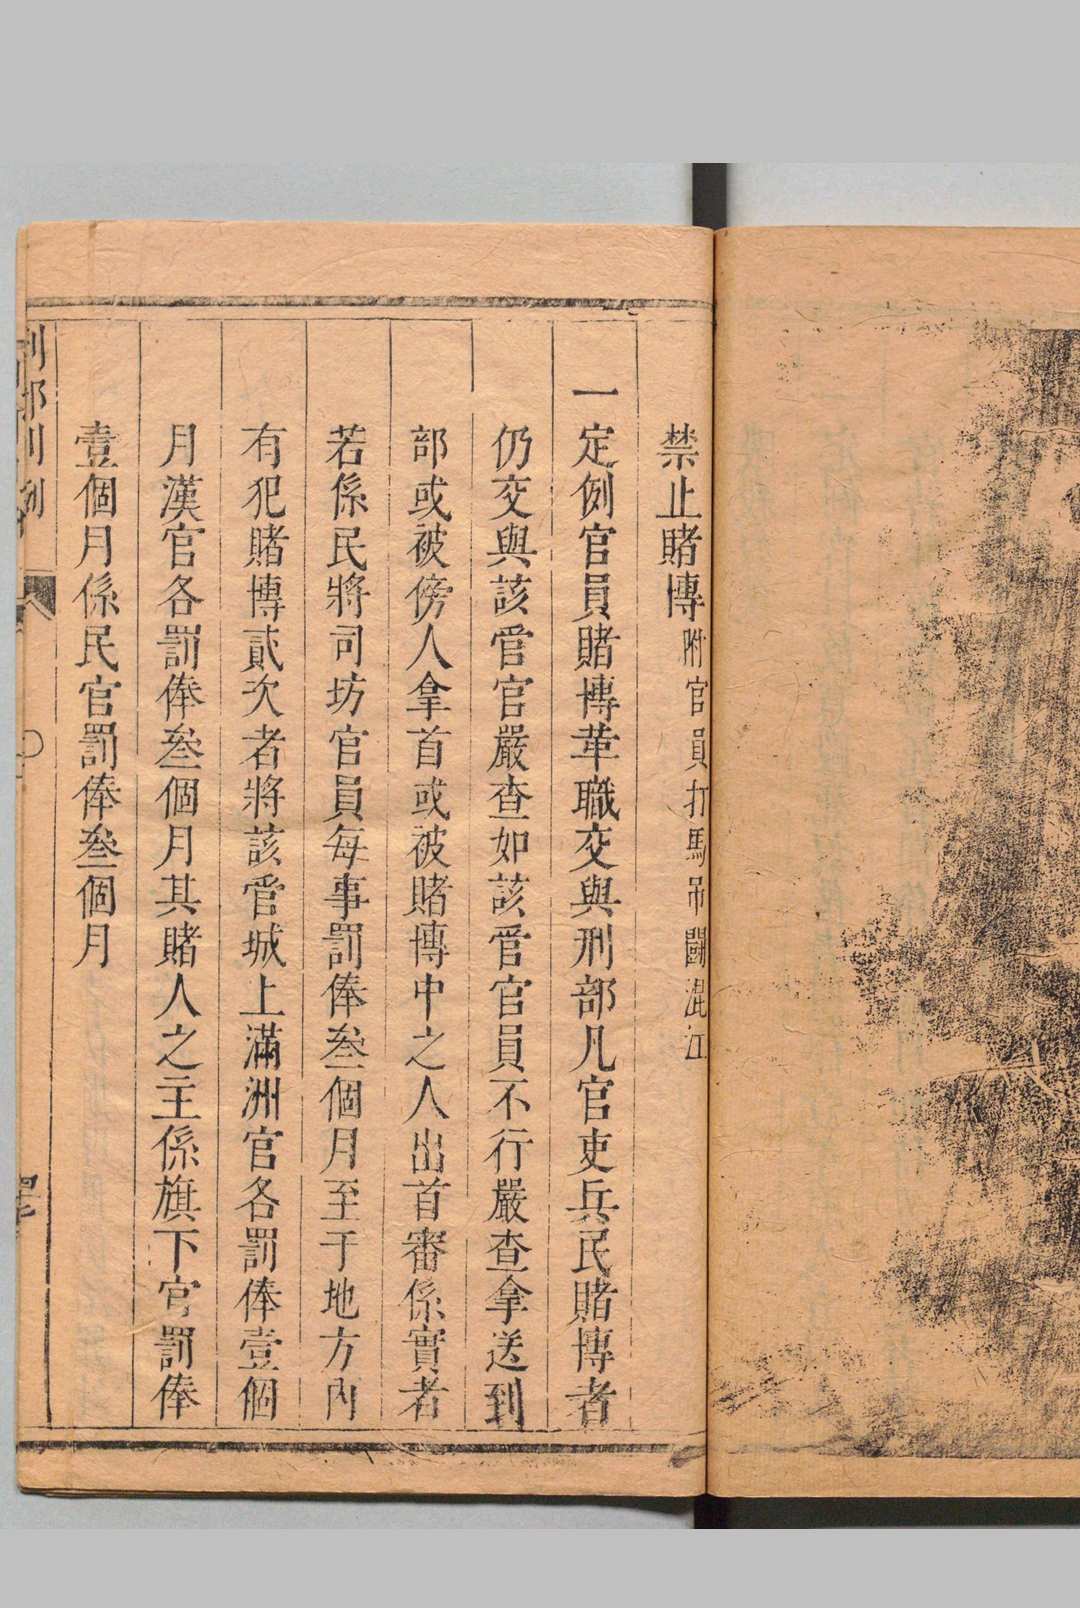 禁止賭博附官員打馬吊鬭混江
一定例官員賭博革職交與刑部凡官吏兵民賭博者
仍交與該管官嚴查如該管官員不行嚴查拿送到
部或被傍人拿首或被賭博中之人出首審係實者
若係民將司坊官員每事罰俸叁個月至于地方內
有犯賭博貳次者將該管城上滿洲官各罰俸壹個
月漢官各罰俸叁個月其賭人之主係旗下官罰俸
壹個月係民官罰俸叁個月